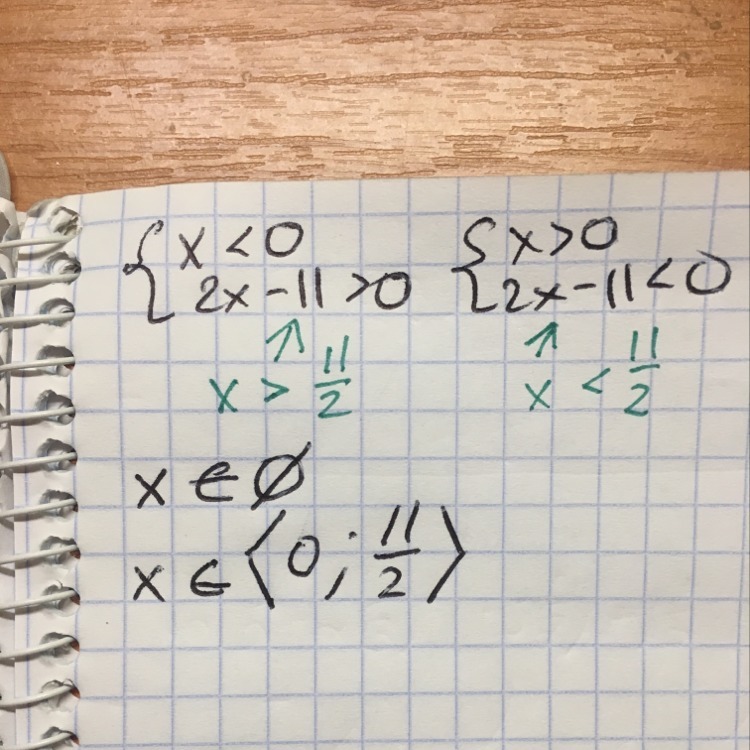 { x < 0
2x - 11 > 0
{ x > 0
2x - 11 < 0
↑
x > 11/2
↑
x < 11/2
x ∈ ∅
x ∈ ⟨0; 11/2⟩